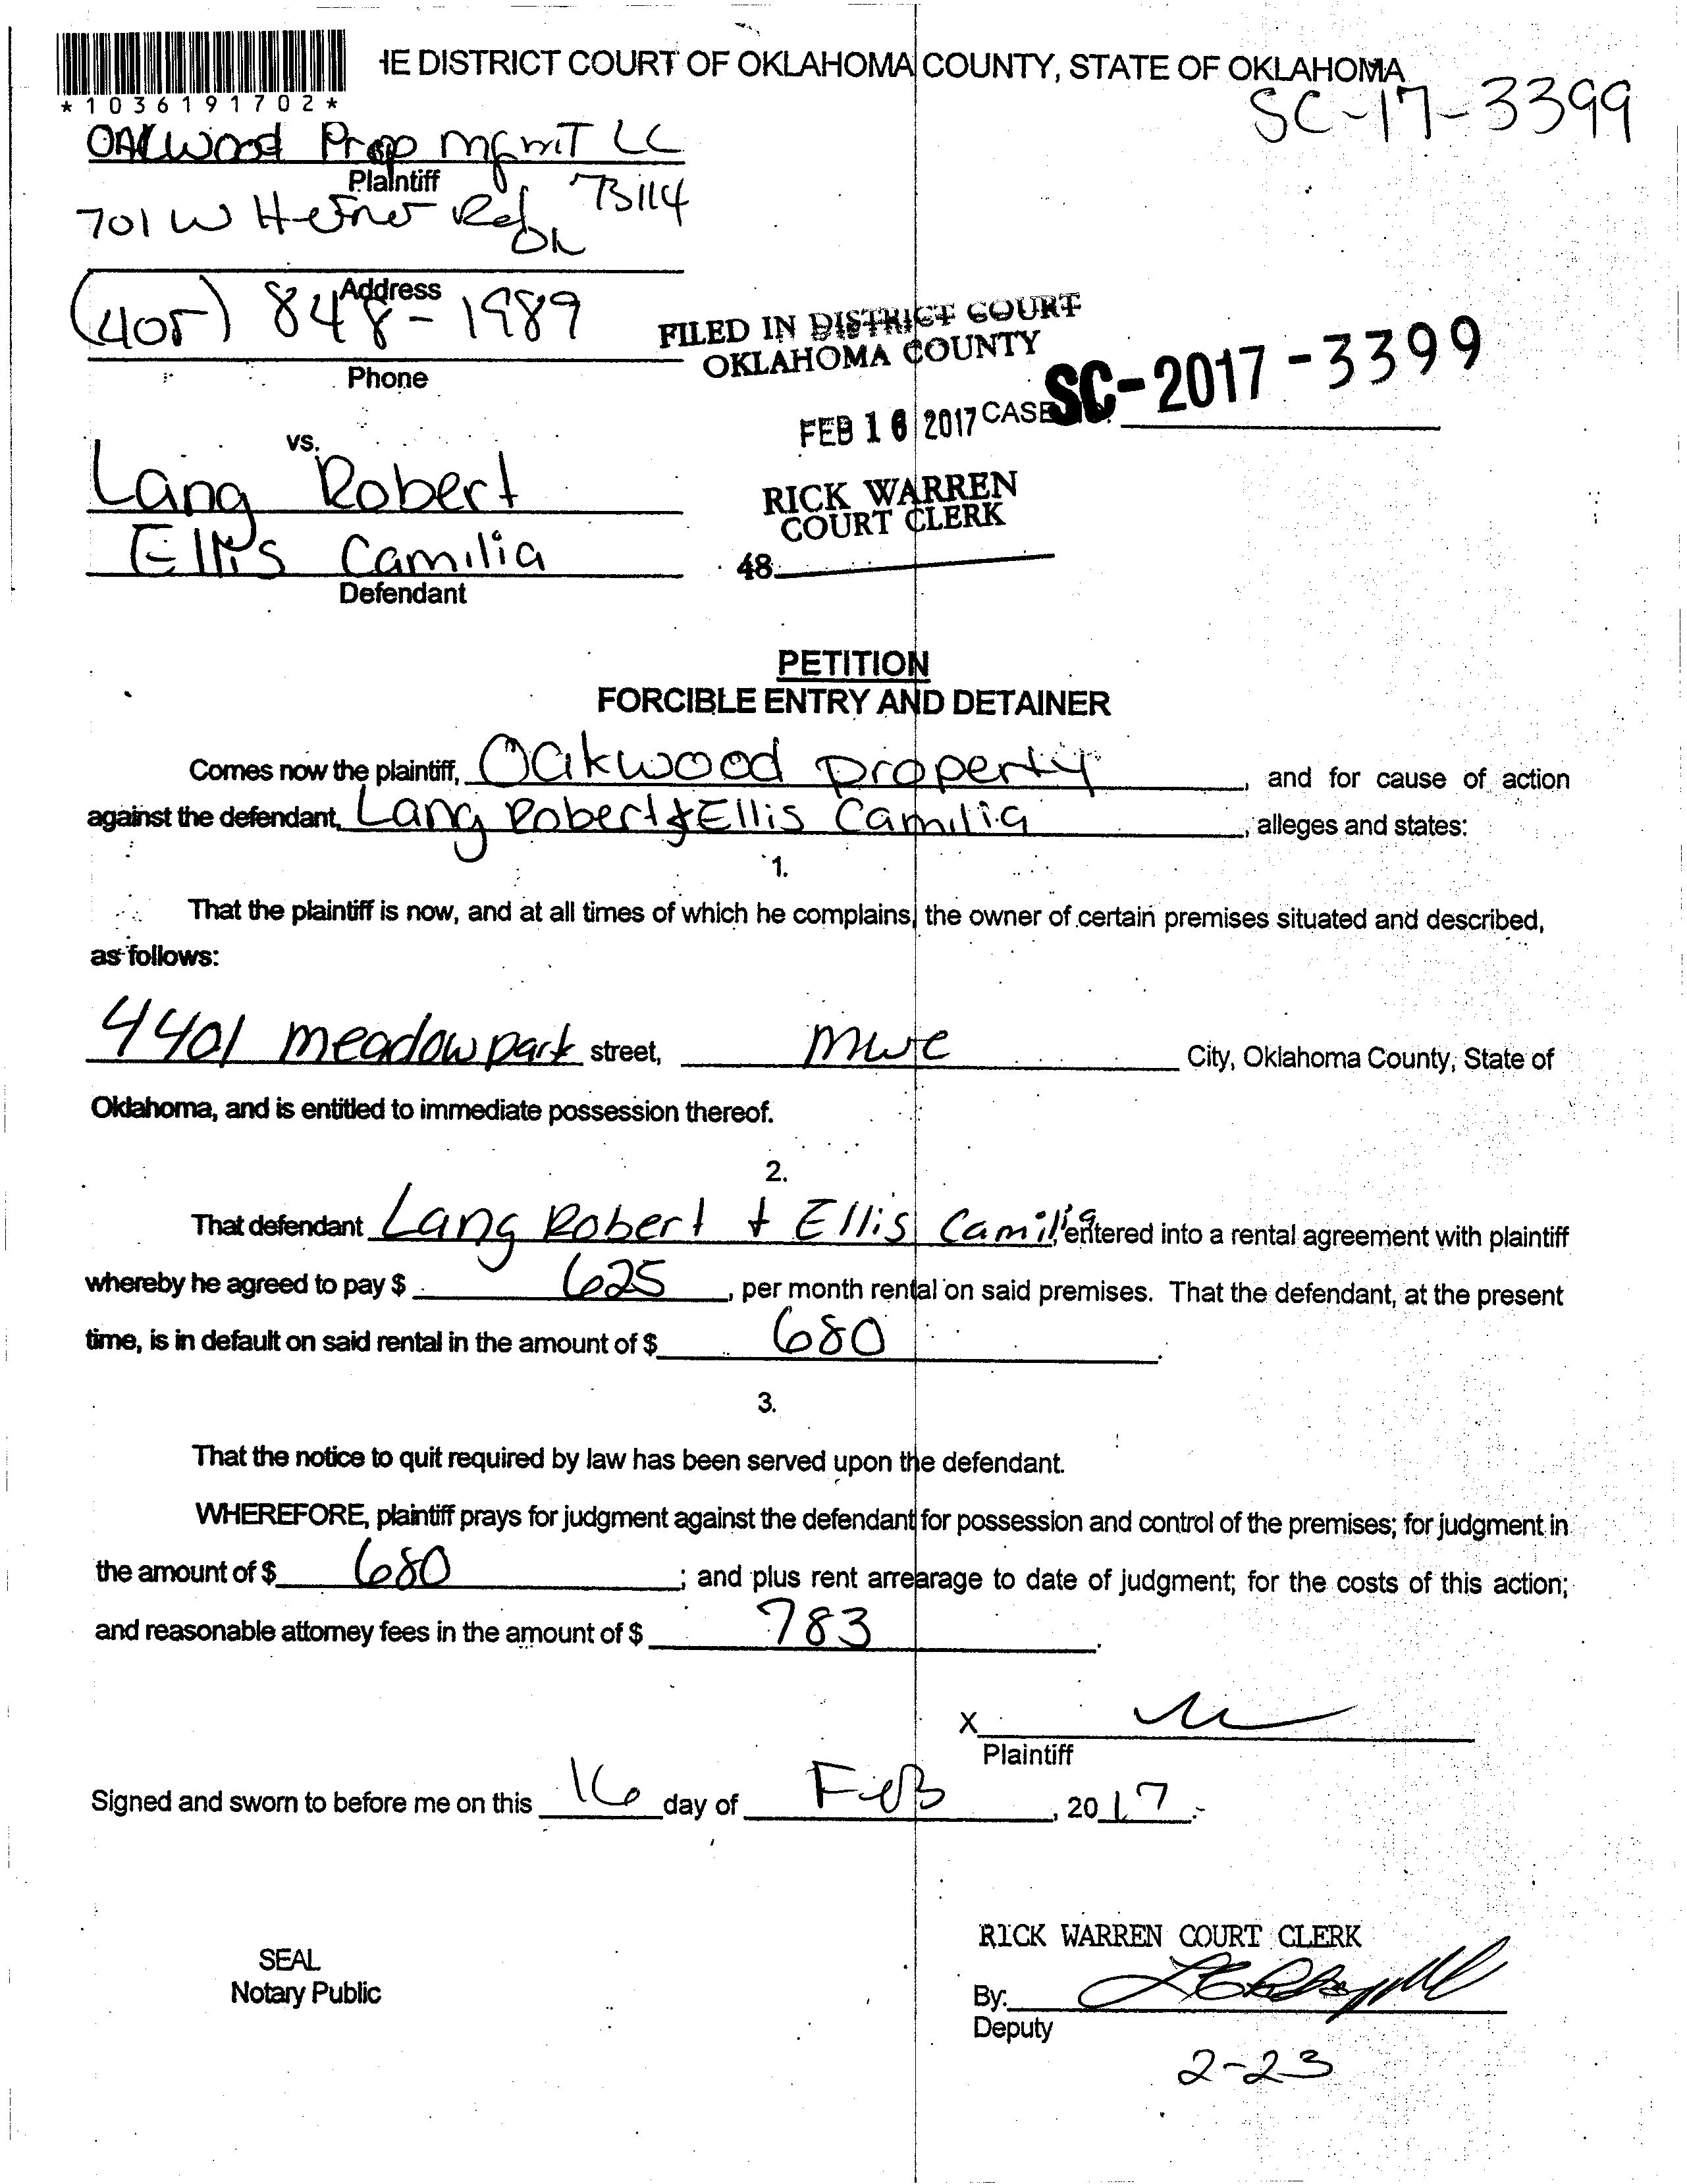 IE DISTRICT COURT OF OKLAHOMA COUNTY, STATE OF OKLAHOMA
*1036191702*
SC-17-3399
OAKwood Prop MgmT LC
Plaintiff
701 W Hefner Rd 73114
OK
Address
(405) 848-1989
Phone
FILED IN DISTRICT COURT
OKLAHOMA COUNTY
FEB 16 2017 CASE SC-2017-3399
vs.
RICK WARREN
COURT CLERK
48
Lang Robert
Ellis Camilia
Defendant
PETITION
FORCIBLE ENTRY AND DETAINER
Comes now the plaintiff, Oakwood property, and for cause of action
against the defendant, Lang Robert & Ellis Camilia, alleges and states:
1.
That the plaintiff is now, and at all times of which he complains, the owner of certain premises situated and described,
as follows:
4401 meadowpark street, mwc City, Oklahoma County, State of
Oklahoma, and is entitled to immediate possession thereof.
2.
That defendant Lang Robert + Ellis Camilia, entered into a rental agreement with plaintiff
whereby he agreed to pay $ 625, per month rental on said premises. That the defendant, at the present
time, is in default on said rental in the amount of $ 680.
3.
That the notice to quit required by law has been served upon the defendant.
WHEREFORE, plaintiff prays for judgment against the defendant for possession and control of the premises; for judgment in
the amount of $ 680; and plus rent arrearage to date of judgment; for the costs of this action;
and reasonable attorney fees in the amount of $ 783.
X
Plaintiff
Signed and sworn to before me on this 16 day of FeB, 2017.
RICK WARREN COURT CLERK
SEAL
Notary Public
By:
Deputy
2-23